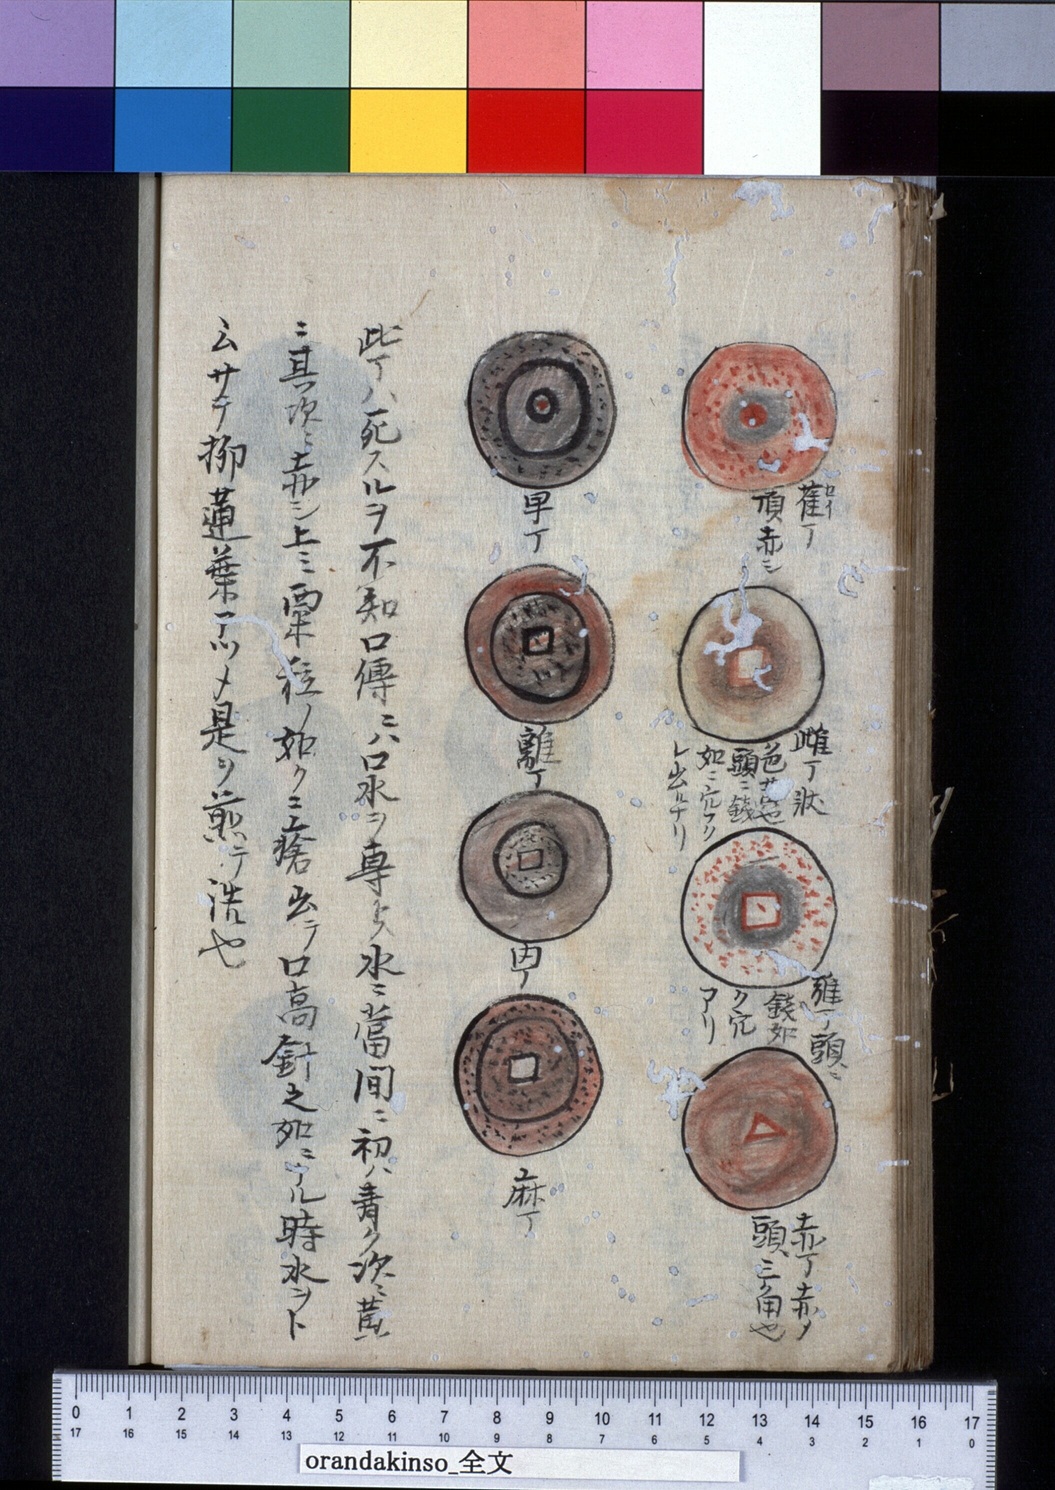 雈丁
ロイ
頂赤シ
雌丁状
色也
頭ニ銭
如ニ穴アリ
レ出ルナリ
雞丁頭ニ
銭如
ク穴
アリ
赤丁赤メ
頭三ケ角也
早丁
離丁
内丁
麻丁
此丁ハ死スルヲ不知口傳ニハ口水ヲ専トス水ニ當間ニ初ハ青ク次ニ黄
ニ其次ニ赤シ上ミ粟粒ノ如クニ瘡出テ口高針之如ニナル時水ヲト
ムサテ柳蓮葉アツメ是ヲ煎テ洗也
0 1 2 3 4 5 6 7 8 9 10 11 12 13 14 15 16 17
17 16 15 14 13 12 11 10 9 8 7 6 5 4 3 2 1 0
orandakinso_全文